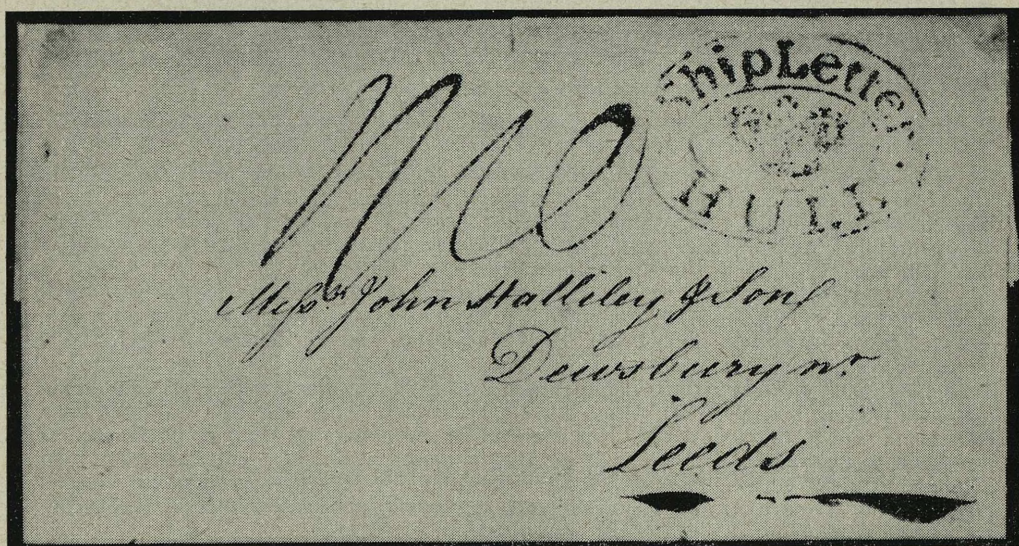 Ship Letter
HULL
Messrs. John Halliley & Sons
Dewsbury nr
Leeds